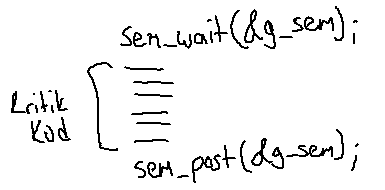 sem_wait(&g_sem);
Kritik
Kod
sem_post(&g_sem);